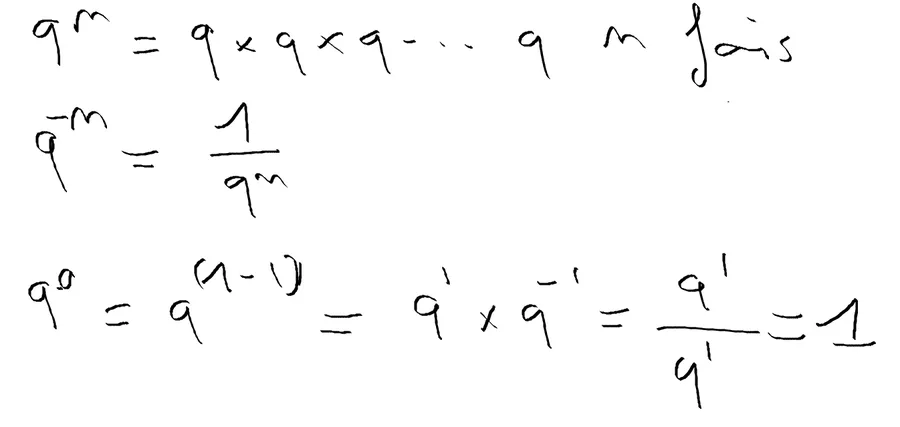 q^n = q × q × q - ... q n fois
q^-n = 1/q^n
q^0 = q^(1-1) = q^1 × q^-1 = q^1/q^1 = 1